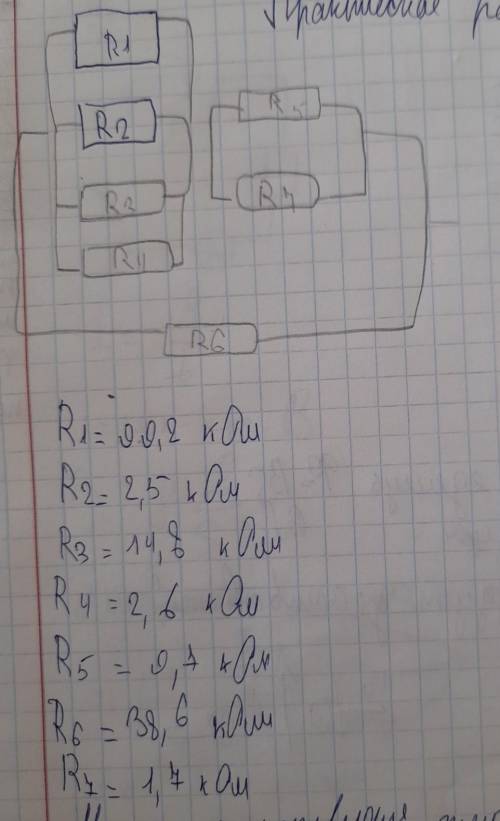 Практическая
R1
R2
R3
R4
R5
R7
R6
R1 = 99,2 кОм
R2 = 2,5 кОм
R3 = 14,8 кОм
R4 = 2,6 кОм
R5 = 9,7 кОм
R6 = 38,6 кОм
R7 = 1,7 кОм